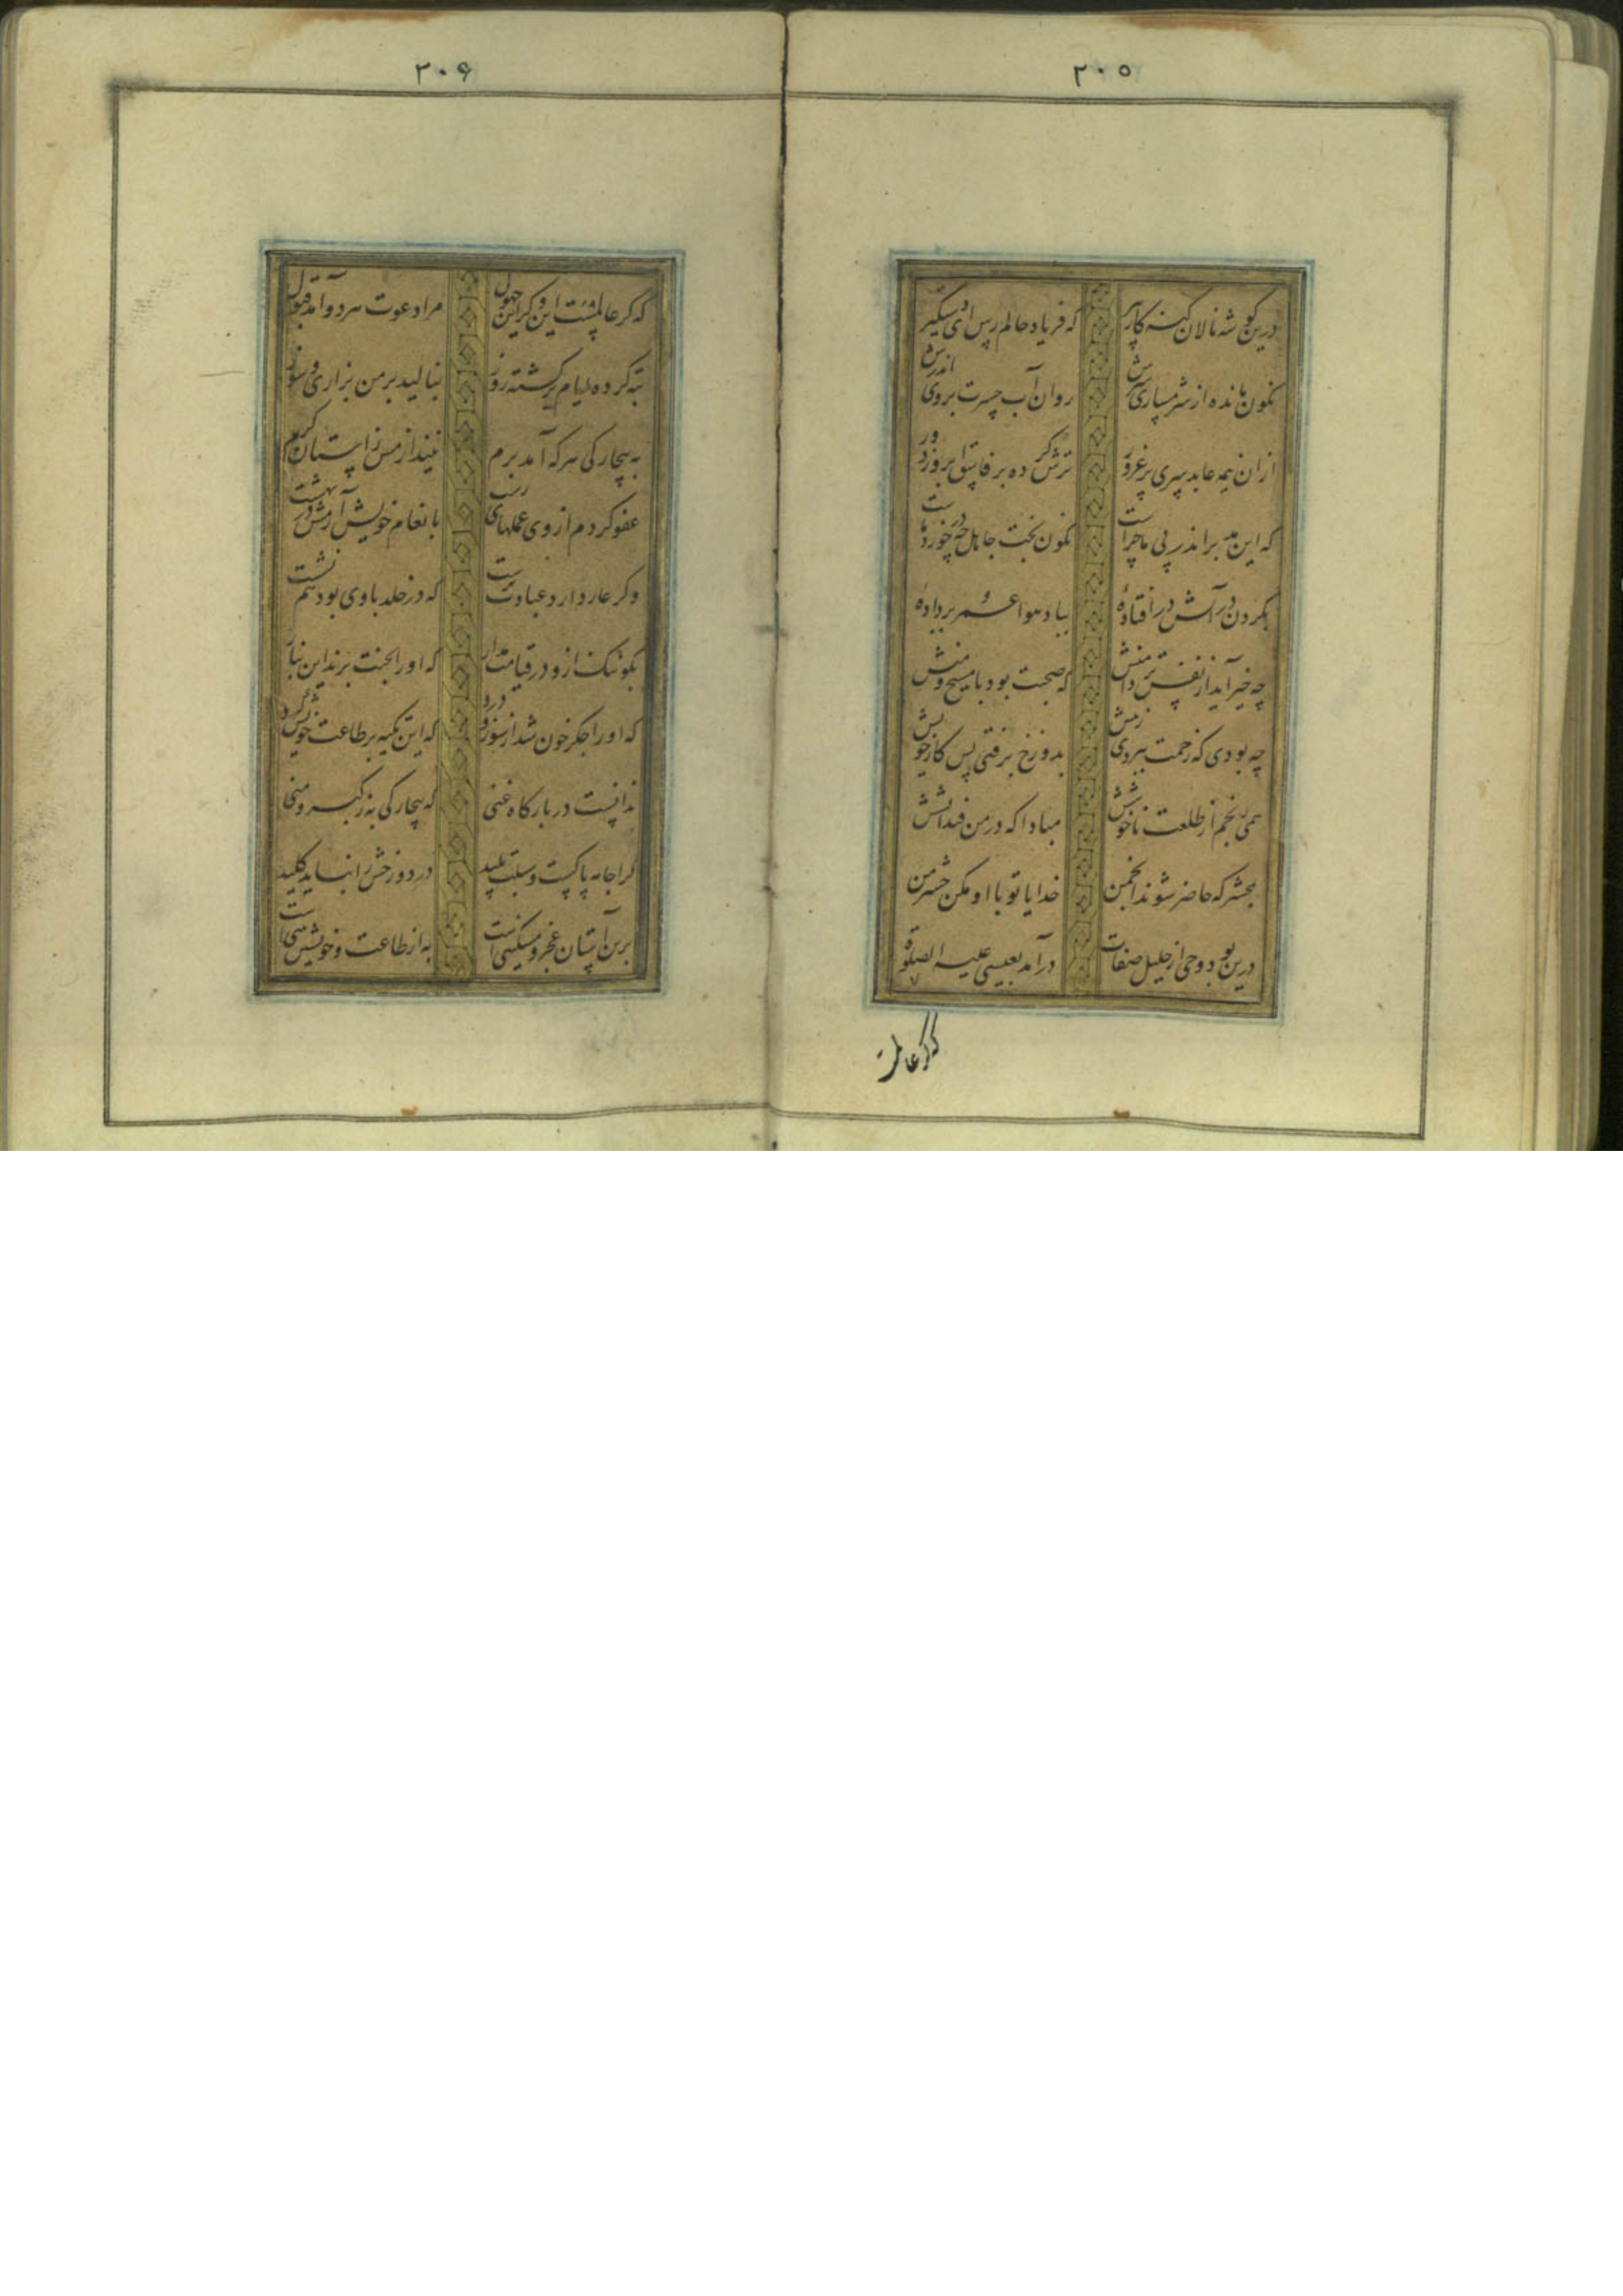 ۲۰۵
درین گوشه نالان گنه کار پیر که فریاد حالم رس ای دستگیر
نگون مانده از شرمساری سرش روان آب حسرت بروی اندرش
ازان نیمه عابد سری پر غرور ترش کرده بر فاسق ابرو ز دور
که این مدبر اندر پی ما چراست نگون بخت جاهل چه در خورد ماست
بگردن در آتش در افتادهٔ بباد هوا عمر بر دادهٔ
چه خیر آید از نفس تر دامنش که صحبت بود با مسیح و منش
چه بودی که زحمت ببردی ز پیش بدوزخ برفتی پس کار خویش
همی رنجم از طلعت ناخوشش مبادا که در من فتد آتشش
بمحشر که حاضر شوند انجمن خدایا تو با او مکن حشر من
درین بود و وحی از جلیل صفات درآمد بعیسی علیه الصلوة
که گر عالمست
۲۰۶
که گر عالمست این و گر این جهول مرا دعوت هر دو آمد قبول
تبه کرده ایام برگشته روز بنالید بر من بزاری و سوز
به بیچارگی هر که آمد برم نیندازمش ز آستان کرم
عفو کردم از وی عملهای زشت بانعام خویش آرمش در بهشت
و گر عار دارد عبادت پرست که در خلد با وی بود هم نشست
بگو ننگ ازو در قیامت مدار که او را بجنت برند این بنار
که او را جگر خون شد از سوز و درد که این تکیه بر طاعت خویش کرد
ندانست در بارگاه غنی که بیچارگی به ز کبر و منی
کرا جامه پاکست و سیرت پلید در دوزخش را نباید کلید
برین آستان عجز و مسکینیست به از طاعت و خویشتن بینیست